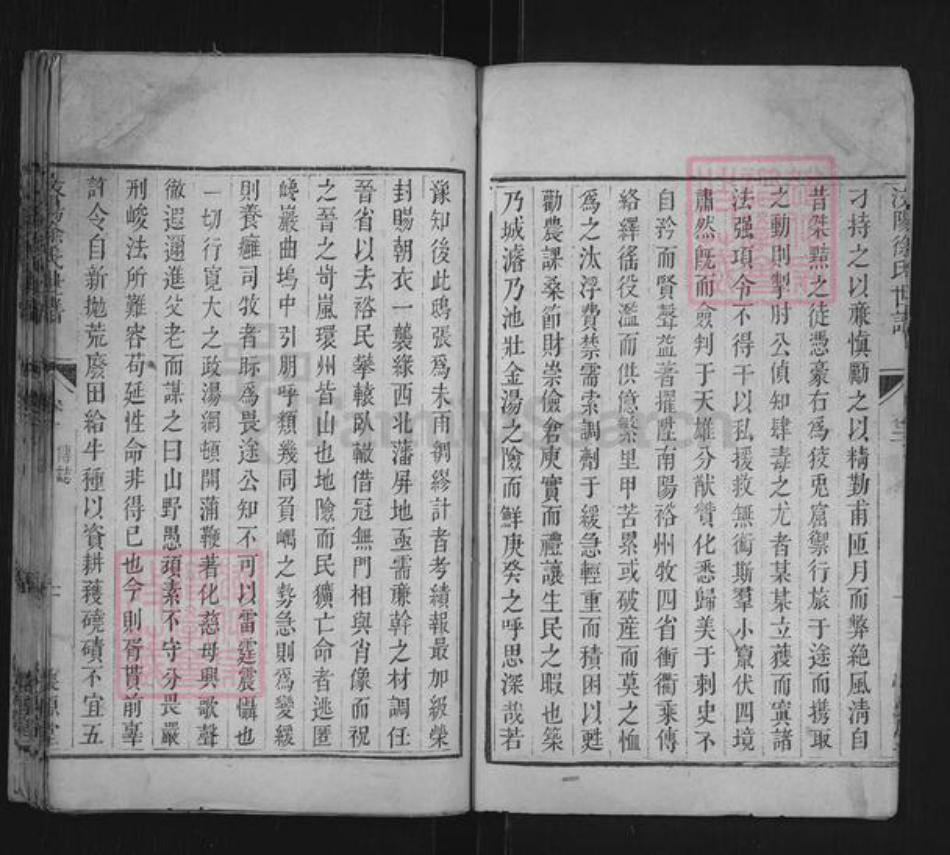 汝陽徐氏世譜
才持之以亷愼勵之以精勤甫匝月而弊絶風淸自
昔桀黠之徒憑豪右爲狡兎窟禦行旅于途而攜取
之動則掣肘公偵知肆毒之尤者某某立獲而寘諸
法强項令不得干以私援救無衙斯羣小竄伏四境
肅然旣而僉判于天雄分猷贊化悉歸美于刺史不
自矜而賢聲益著擢陞南陽裕州牧四省衝衢乘傳
絡繹徭役濫而供億繁里甲苦累或破産而莫之恤
爲之汰浮費禁需索調劑于緩急輕重而積困以甦
勸農課桑節財崇儉倉庾實而禮讓生民之暇也築
乃城濬乃池壯金湯之險而鮮庚癸之呼思深哉若
豫知後此鴟張爲未雨綢繆計者考績報最加級榮
封賜朝衣一襲緣西北藩屏地亟需亷幹之材調任
晉省以去裕民攀轅臥轍借冦無門相與肖像而祝
之晉之岢嵐環州皆山也地險而民獷亡命者逃匿
巉巖曲塢中引朋呼類幾同負嵎之勢急則爲變緩
則養癰司牧者眎爲畏途公知不可以雷霆震懾也
一切行寬大之政湯網頓開蒲鞭著化慈母興歌聲
徹遐邇進父老而謀之曰山野愚頑素不守分畏嚴
刑峻法所難容苟延性命非得已也今則胥貰前辜
許令自新抛荒廢田給牛種以資耕穫磽磧不宜五
傳誌